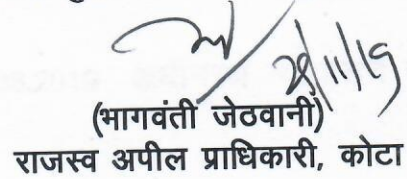 28/11/19
(भागवंती जेठवानी)
राजस्व अपील प्राधिकारी, कोटा